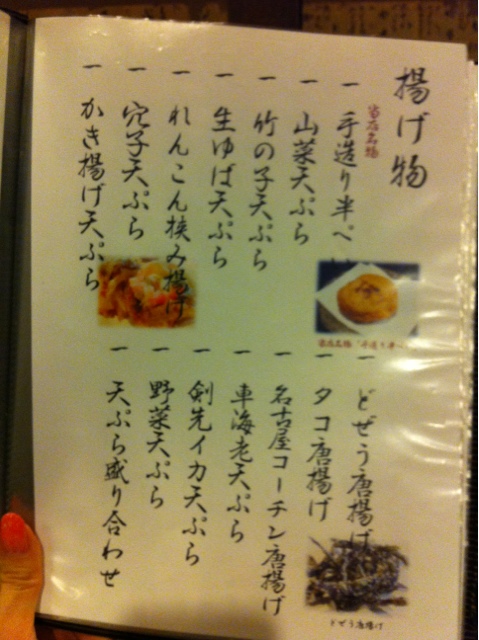 揚げ物
当店名物
一 手造り半ぺん
一 山菜天ぷら
一 竹の子天ぷら
一 生ゆば天ぷら
一 れんこん挟み揚げ
一 穴子天ぷら
一 かき揚げ天ぷら
当店名物「手造り半ぺん」
一 どぜう唐揚げ
一 タコ唐揚げ
一 名古屋コーチン唐揚げ
一 車海老天ぷら
一 剣先イカ天ぷら
一 野菜天ぷら
一 天ぷら盛り合わせ
どぜう唐揚げ